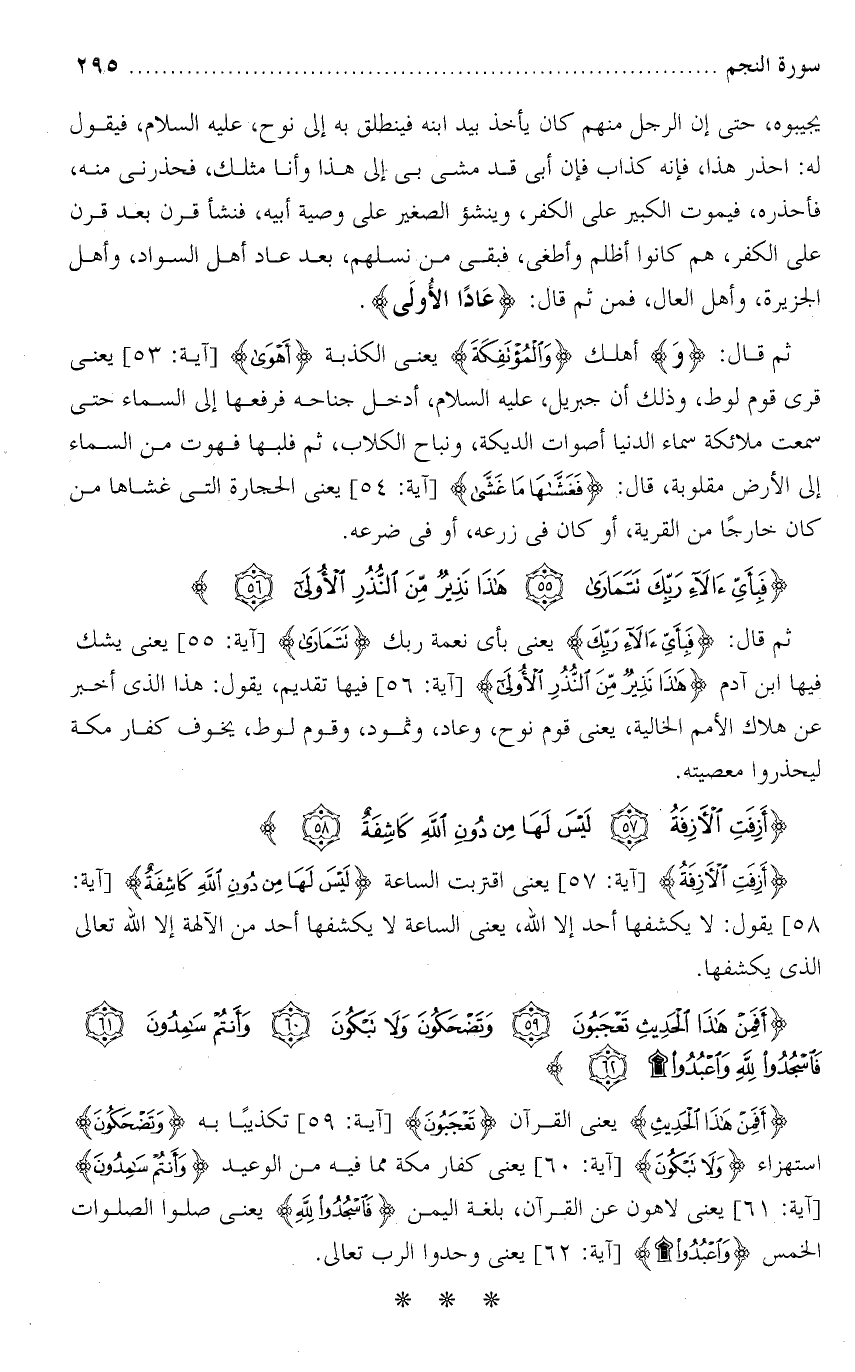 سورة النجم ................................................................ ٢٩٥
يجيبوه، حتى إن الرجل منهم كان يأخذ بيد ابنه فينطلق به إلى نوح، عليه السلام، فيقول
له: احذر هذا، فإنه كذاب فإن أبى قد مشى بى إلى هذا وأنا مثلك، فحذرنى منه،
فأحذره، فيموت الكبير على الكفر، وينشؤ الصغير على وصية أبيه، فنشأ قرن بعد قرن
على الكفر، هم كانوا أظلم وأطغى، فبقى من نسلهم، بعد عاد أهل السواد، وأهل
الجزيرة، وأهل العال، فمن ثم قال: ﴿عَادًا الأُولَى﴾ .
ثم قال: ﴿وَ﴾ أهلك ﴿وَٱلْمُؤْتَفِكَةَ﴾ يعنى الكذبة ﴿أَهْوَىٰ﴾ [آية: ٥٣] يعنى
قرى قوم لوط، وذلك أن جبريل، عليه السلام، أدخل جناحه فرفعها إلى السماء حتى
سمعت ملائكة سماء الدنيا أصوات الديكة، ونباح الكلاب، ثم قلبها فهوت من السماء
إلى الأرض مقلوبة، قال: ﴿فَغَشَّىٰهَا مَا غَشَّىٰ﴾ [آية: ٥٤] يعنى الحجارة التى غشاها من
كان خارجًا من القرية، أو كان فى زرعه، أو فى ضرعه.
﴿فَبِأَىِّ ءَالَآءِ رَبِّكَ نَتَمَارَىٰ ٥٥ هَٰذَا نَذِيرٌ مِّنَ ٱلنُّذُرِ ٱلْأُولَىٰٓ ٥٦ ﴾
ثم قال: ﴿فَبِأَىِّ ءَالَآءِ رَبِّكَ﴾ يعنى بأى نعمة ربك ﴿نَتَمَارَىٰ﴾ [آية: ٥٥] يعنى يشك
فيها ابن آدم ﴿هَٰذَا نَذِيرٌ مِّنَ ٱلنُّذُرِ ٱلْأُولَىٰٓ﴾ [آية: ٥٦] فيها تقديم، يقول: هذا الذى أخبر
عن هلاك الأمم الخالية، يعنى قوم نوح، وعاد، وثمود، وقوم لوط، يخوف كفار مكة
ليحذروا معصيته.
﴿أَزِفَتِ ٱلْأَزِفَةُ ٥٧ لَيْسَ لَهَا مِن دُونِ ٱللَّهِ كَاشِفَةٌ ٥٨ ﴾
﴿أَزِفَتِ ٱلْأَزِفَةُ﴾ [آية: ٥٧] يعنى اقتربت الساعة ﴿لَيْسَ لَهَا مِن دُونِ ٱللَّهِ كَاشِفَةٌ﴾ [آية:
٥٨] يقول: لا يكشفها أحد إلا الله، يعنى الساعة لا يكشفها أحد من الآلهة إلا الله تعالى
الذى يكشفها.
﴿أَفَمِنْ هَٰذَا ٱلْحَدِيثِ تَعْجَبُونَ ٥٩ وَتَضْحَكُونَ وَلَا تَبْكُونَ ٦٠ وَأَنتُمْ سَٰمِدُونَ ٦١
فَٱسْجُدُوا۟ لِلَّهِ وَٱعْبُدُوا۟ ۩ ٦٢ ﴾
﴿أَفَمِنْ هَٰذَا ٱلْحَدِيثِ﴾ يعنى القرآن ﴿تَعْجَبُونَ﴾ [آية: ٥٩] تكذيبًا به ﴿وَتَضْحَكُونَ﴾
استهزاء ﴿وَلَا تَبْكُونَ﴾ [آية: ٦٠] يعنى كفار مكة مما فيه من الوعيد ﴿وَأَنتُمْ سَٰمِدُونَ﴾
[آية: ٦١] يعنى لاهون عن القرآن، بلغة اليمن ﴿فَٱسْجُدُوا۟ لِلَّهِ﴾ يعنى صلوا الصلوات
الخمس ﴿وَٱعْبُدُوا۟ ۩﴾ [آية: ٦٢] يعنى وحدوا الرب تعالى.
* * *